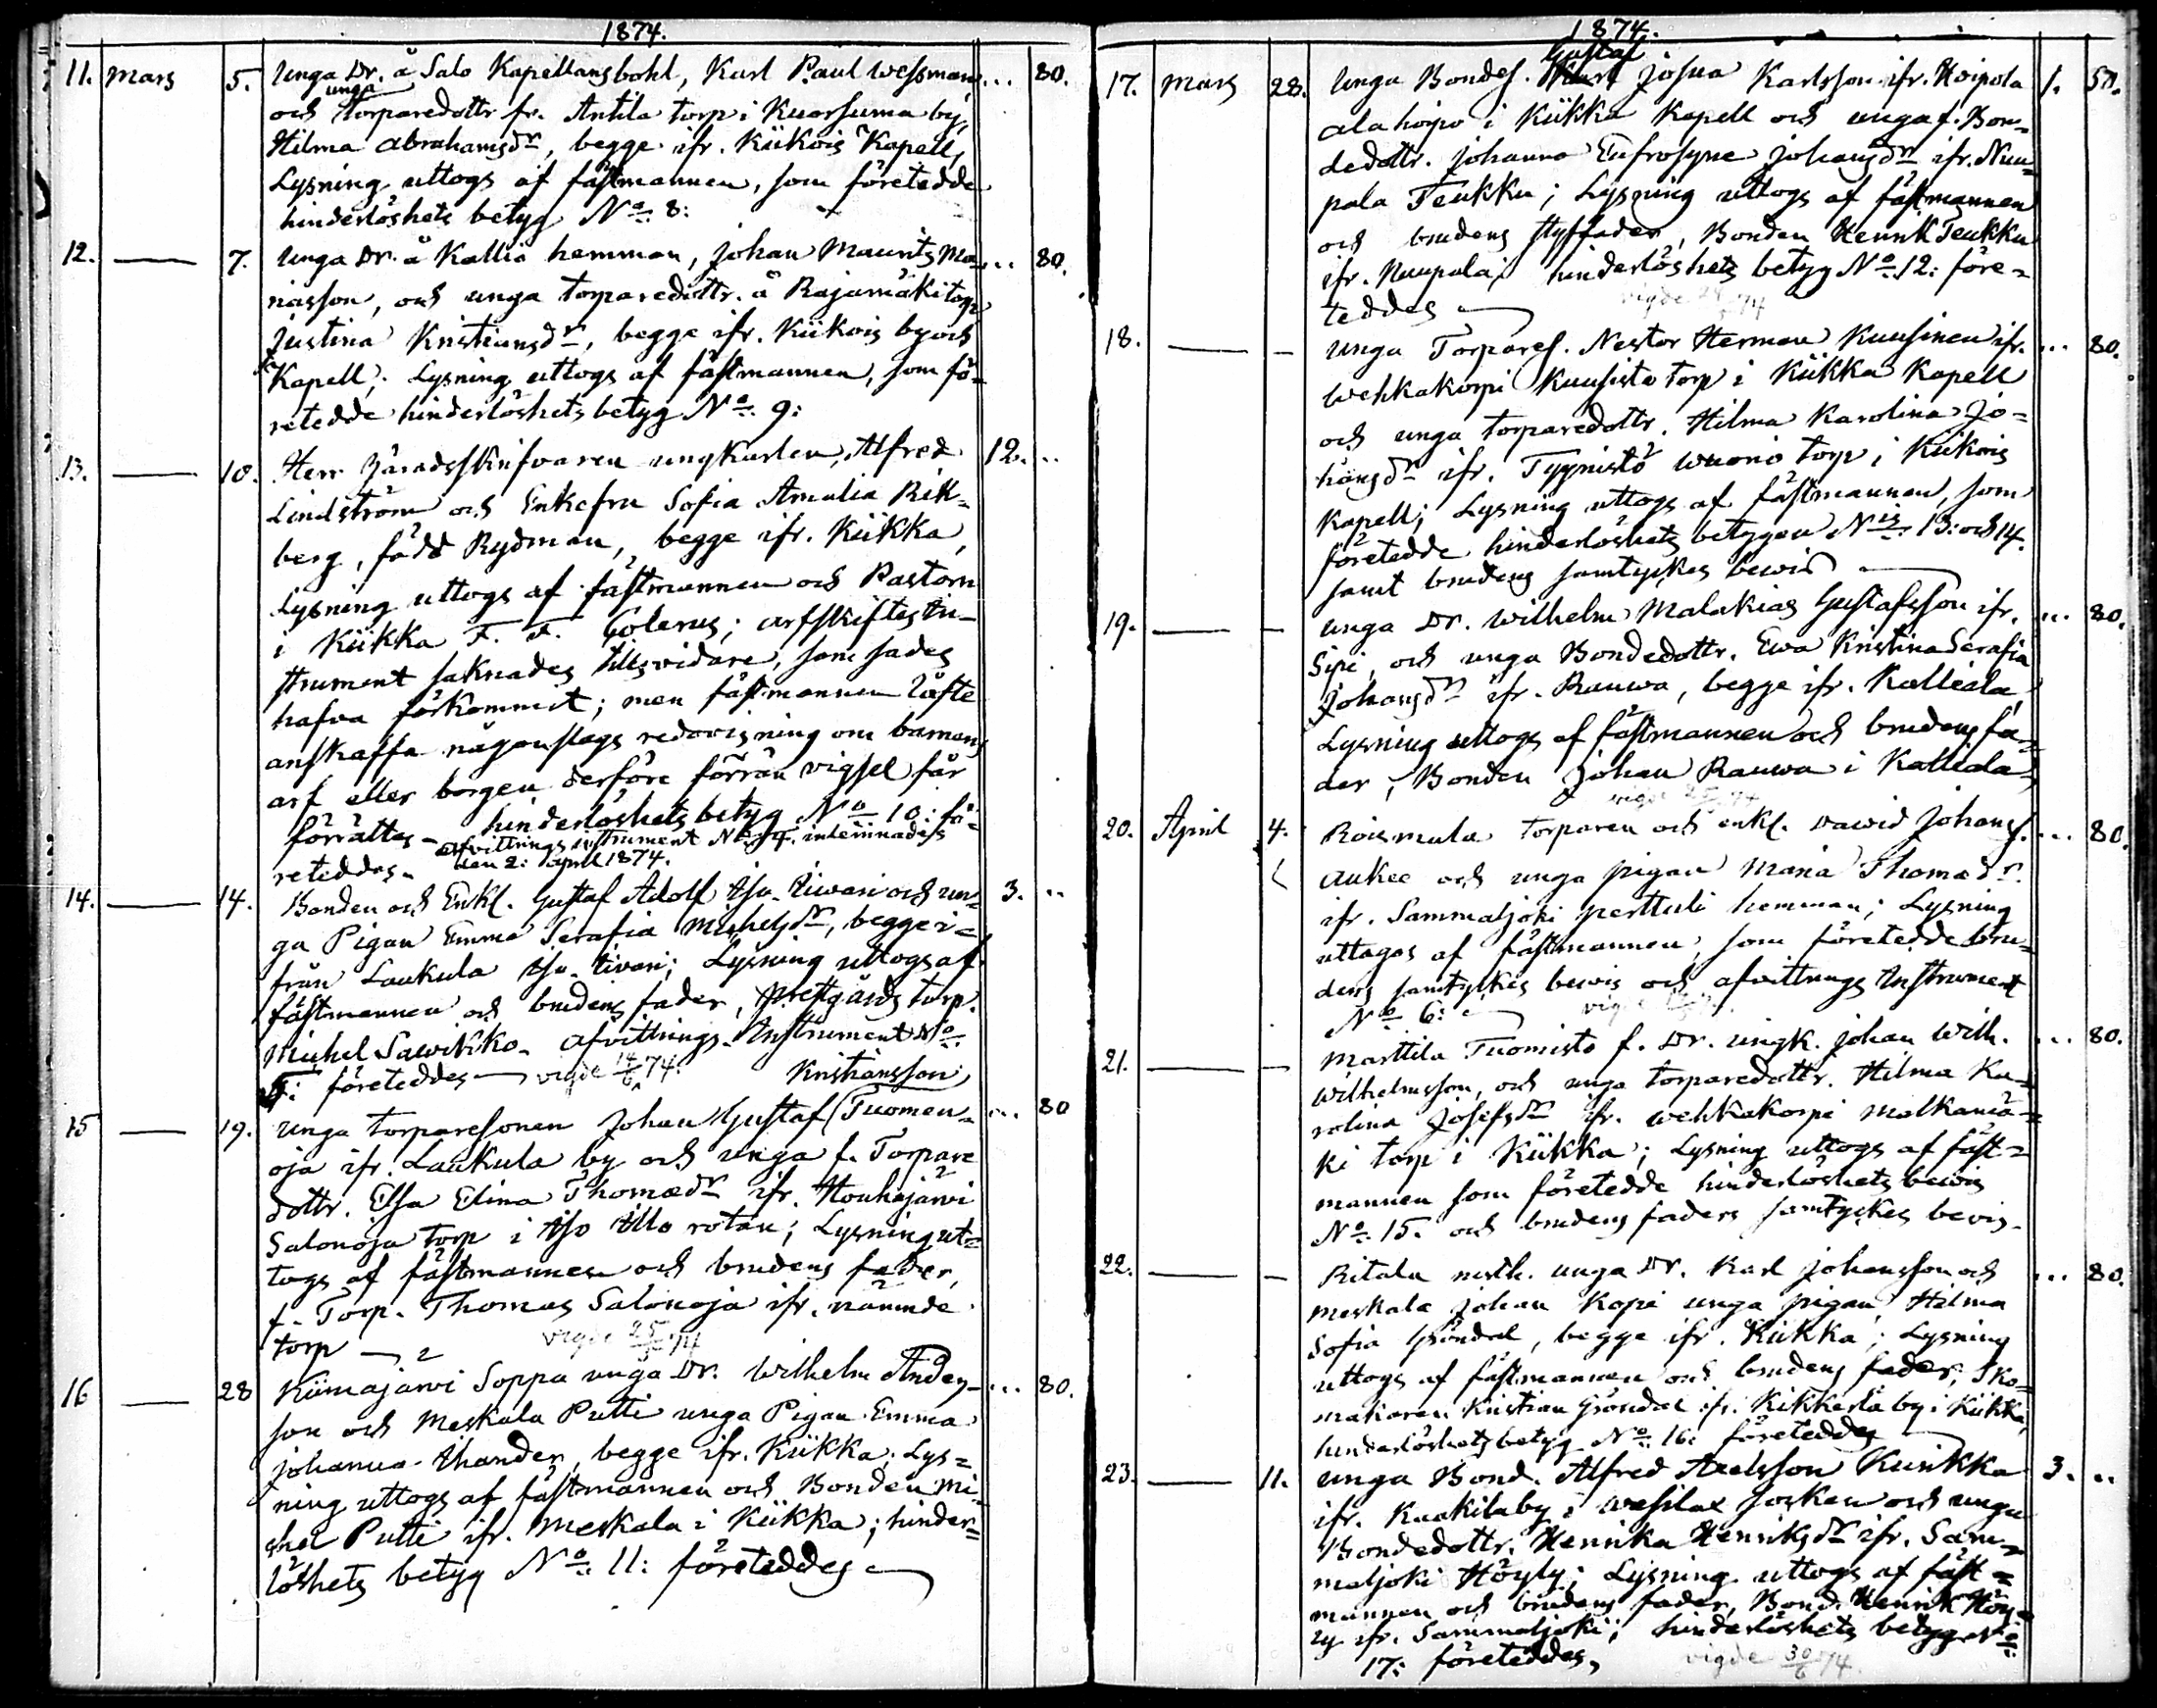 1874.
11. Mars 5. Unga Dr. å Salo Kapellansbohl, Karl Paul Wessman, ... 80.
unga
och Torparedottr fr. Anttila torp i Kuorsuma by,
Hilma Abrahamsdr, begge ifr. Kiikois Kapell,
Lysning uttogs af fästmannen, som företedde
hinderlöshets betyg No 8:
12. — 7. Unga Dr. å Kallio hemman, Johan Maurits Ma- ... 80.
niasson, och unga torparedottr. å Rajamäki torp
Justina Kristiansdr, begge ifr. Kiikois by och
Kapell; Lysning uttogs af fästmannen, som fö-
retedde hinderlöshets betyg No 9:
13. — 10. Herr Häradsskrifvaren ungkarlen, Alfred 12. ..
Lindström och Enkefru Sofia Amalia Rik-
berg, född Rydman, begge ifr. Kiikka,
Lysning uttogs af fästmannen och Pastorn
i Kiikka F. F. Golenus; arfskiftes in-
strument saknades tillsvidare, som sades
hafva förkommit; men fästmannen låfte
anskaffa någonslags redovisning om barnens
arf eller borgen derföre förrän vigsel får
förrättas - hinderlöshets betyg No 10: fö-
afvittrings instrument No 4. inlemnades
reteddes. den 2: April 1874.
14. — 14. Bonden och Enkl. Gustaf Adolf Iso-Tiwari och un- 3. ..
ga Pigan Emma Serafia Michelsdr, begge i-
från Laukula Iso-tivari; Lysning uttogs af
fästmannen och brudens fader, prestgårds torp.
Michel Sawikko. afvittrings-Instrument No
5: företeddes — vigde 14/6 74. Kristiansson
15 — 19. Unga torparesonen Johan Gustaf (Tuomen- ... 80
oja ifr. Laukula by och unga f. Torpare
dottr. Elsa Elina Thomædr ifr. Houhajärvi
Salonoja torp i Iso Illo rotan; Lysning ut-
togs af fästmannen och brudens fader,
f. Torp. Thomas Salonoja ifr. nämnde
torp — vigde 25/5 74
16 — 28 Kiimajärvi Soppa unga Dr. Wilhelm Anders- ... 80.
son och Meskala Putti unga Pigan Emma
Johanna Thander, begge ifr. Kiikka; Lys-
ning uttogs af fästmannen och Bonden Mi-
chel Putti ifr. Meskala i Kiikka; hinder-
löshets betyg No 11: företeddes —
1874.
Gustaf
17. Mars 28. Unga Bondes. Josua Karlsson ifr. Koipola 1. 50.
Alahoipo i Kiikka Kapell och unga f. Bon-
dedottr. Johanna Eufrosyne Johansdr ifr. Nuu-
pala Teukku; Lysning uttogs af fästmannen
och brudens styffader, Bonden Henrik Teukku
ifr. Nuupala; hinderlöshets betyg No 12: före-
teddes — vigde 74
18. — - Unga Torpares. Nestor Herman Kuusinen ifr. ... 80.
Wehkakorpi Kuusisto torp i Kiikka Kapell
och unga torparedottr. Hilma Karolina Jo-
hansdr ifr. Tyynistö Wuorio torp i Kiikois
Kapell; Lysning uttogs af fästmannen, som
företedde hinderlöshets betygen Nis 13: och 14.
samt brudens samtyckes bewis —
19. — - Unga Dr. Wilhelm Malakias Gustafsson ifr. ... 80.
Sipi, och unga Bondedottr. Ewa Kristina Serafia
Johansdr ifr. Rauwa, begge ifr. Kallidla,
Lysning uttogs af fästmannen och brudens fa-
der, Bonden Johan Rauwa i Kalliala,
vigde 74
20. April 4. Roismala torparen och enkl. Dawid Johans. ... 80.
Aukee och unga pigan Maria Thomædr.
ifr. Sammaljoki Perttuli hemman; Lysning
uttogos af fästmannen, som företedde bru-
dens samtyckes bewis och afvittrings Instrument
No 6: — vigde
21. — - Marttila Tuomisto f. Dr. ungk. Johan Wilh. ... 80.
Wilhelmsson, och unga torparedottr. Hilma Ka-
rolina Josefsdr ifr. Wehkakorpi Malkamä-
ki torp i Kiikka; Lysning uttogs af fäst-
mannen som företedde hinderlöshets bewis
No 15. och brudens faders samtyckes bevis.
22. — - Ritala unga Dr. Karl Johansson och ... 80.
Meskala Johan Kopi unga pigan Hilma
Sofia Gröndal, begge ifr. Kiikka; Lysning
uttogs af fästmannen och brudens fader, Sko-
makaren Kristian Gröndal ifr. Kikkerlä by i Kiikka,
hinderlöshets betyg No 16: företeddes
23. — 11. Unga Bond. Alfred Axelsson Kurikka 3. ..
ifr. Kaakila by i Wesilax Socken och unga
Bondedottr. Henrika Henriksdr ifr. Sam-
maljoki Höyly; Lysning uttogs af fäst-
mannen och brudens fader, Bond. Henrik Höy-
ly ifr. Sammaljoki; hinderlöshets betyg No
17: företeddes, vigde 30/6 74.